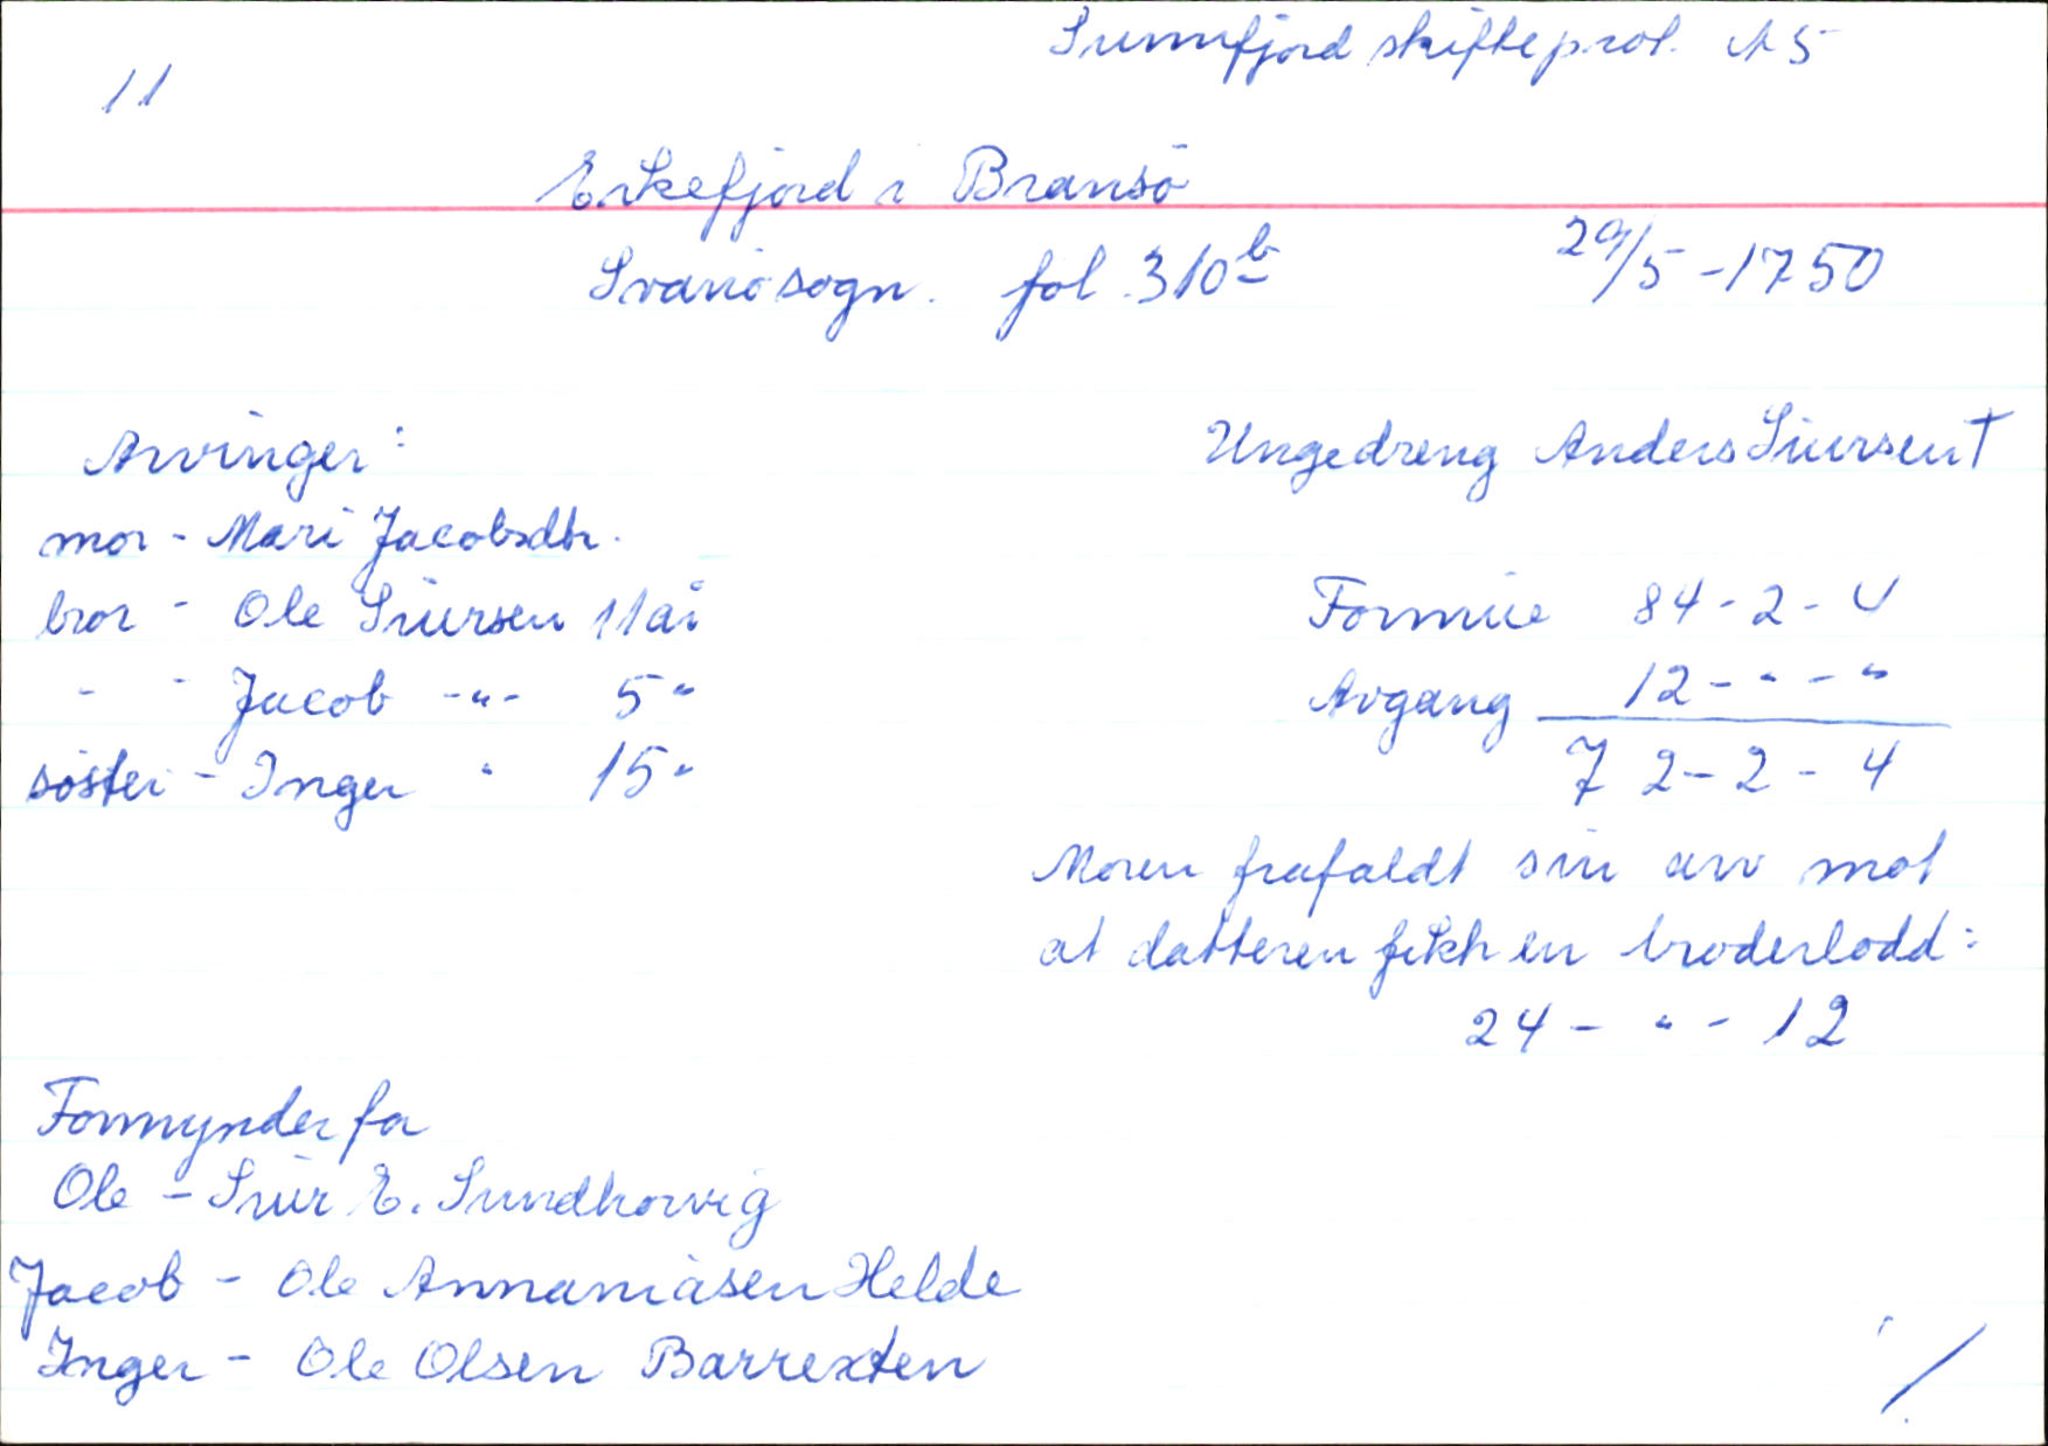 Sunnfjord skifteprot. A 5
11
Erkefjord i Bransö
Svanö sogn. fol. 310 b 29/5 - 1750
Arvinger: Ungedreng Anders Siursen †
mor - Mari Jacobsdtr.
bror - Ole Siursen 11 år Formue 84 - 2 - 4
- - Jacob -"- 5 " Avgang 12 - " - "
söster - Inger " 15 " 72 - 2 - 4
Moren frafaldt sin arv mot
at datteren fikk en broderlodd:
24 - " - 12
Formynder for
Ole - Siur E. Sundhovvig
Jacob - Ole Annaniasen Helde
Inger - Ole Olsen Barrexten